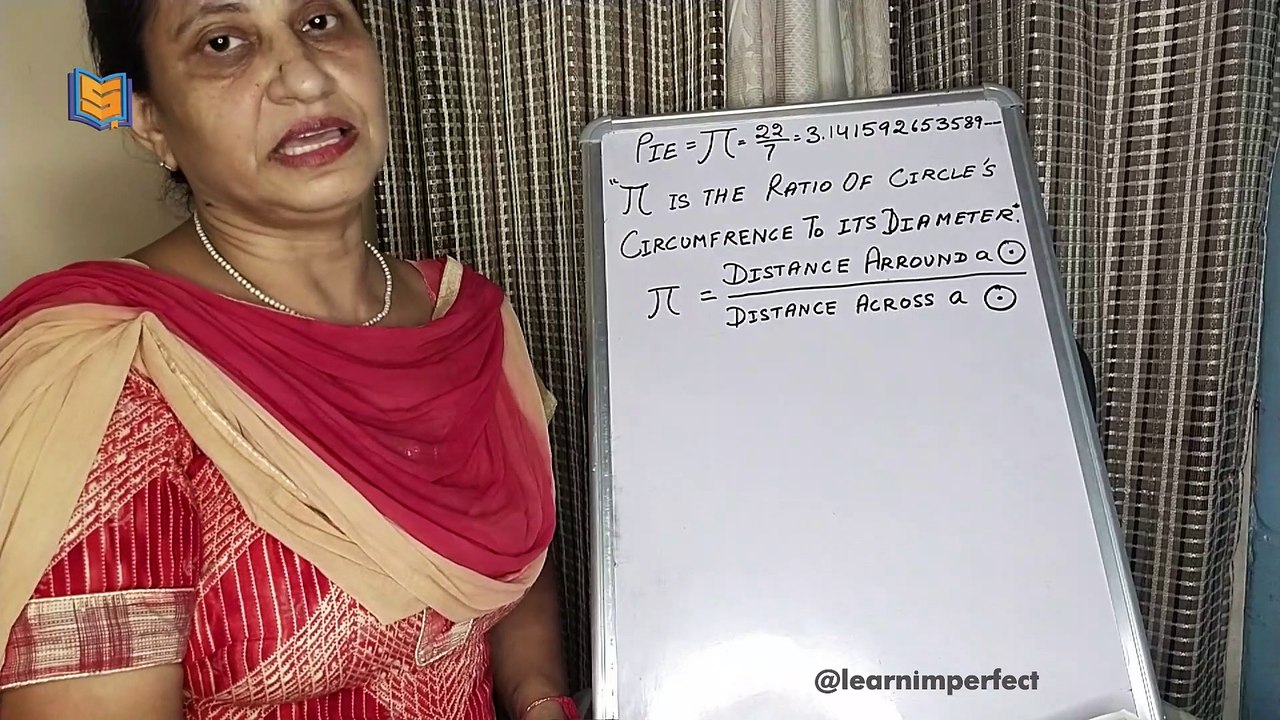 PIE = π = 22/7 = 3.141592653589---
"π IS THE RATIO OF CIRCLE'S
CIRCUMFRENCE TO ITS DIAMETER".
π = DISTANCE ARROUND a ⊙
DISTANCE ACROSS a ⊙
@learnimperfect